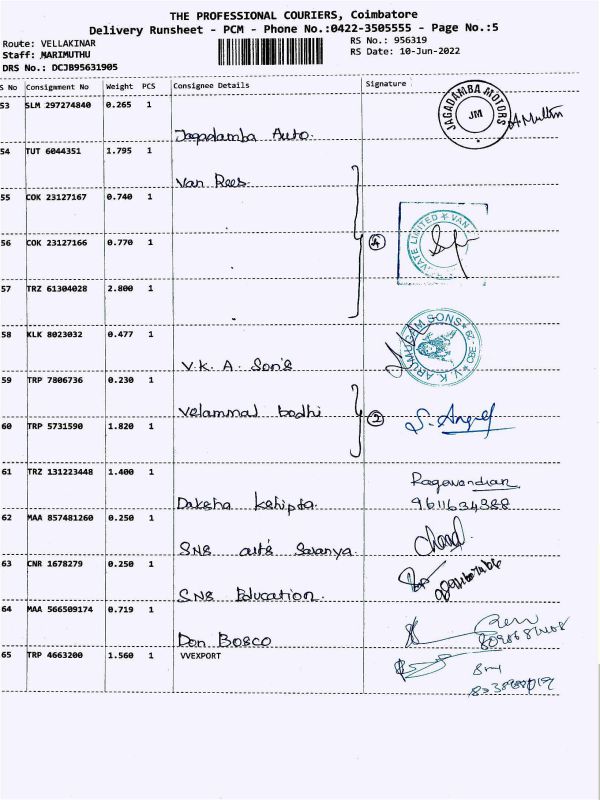 THE PROFESSIONAL COURIERS, Coimbatore
Delivery Runsheet - PCM - Phone No.:0422-3505555 - Page No.:5
Route: VELLAKINAR
RS No.: 956319
Staff: MARIMUTHU
RS Date: 10-Jun-2022
DRS No.: DCJB95631905
S No Consignment No Weight PCS Consignee Details Signature
53 SLM 297274840 0.265 1
JAGADAMBA MOTORS
JM
Jagadamba Auto.
54 TUT 6044351 1.795 1
Van Rees
55 COK 23127167 0.740 1
VATE LIMITED * VAN
56 COK 23127166 0.770 1
4
57 TRZ 61304028 2.800 1
58 KLK 8023032 0.477 1
V.K. ARUMUGAM SONS * CBE - 29 *
V.K. A. Son's
59 TRP 7806736 0.230 1
Velammal bodhi
2
60 TRP 5731590 1.820 1
S. Angel
61 TRZ 131223448 1.400 1
Daksha
9611634388
62 MAA 857481260 0.250 1
SNS arts Saranya.
63 CNR 1678279 0.250 1
SNS Education.
64 MAA 566509174 0.719 1
Don Bosco
65 TRP 4663200 1.560 1 VVEXPORT